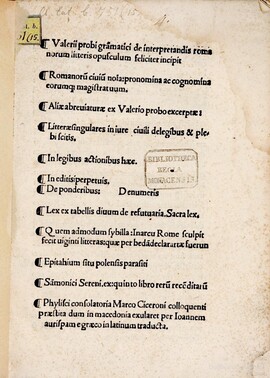 ¶ Valerii probi grāmatici de interpretandis romanorum litteris opusculum feliciter incipit
¶ Romanorū ciuiū noīa: pronomina ac cognomina
eorumq; magistratuum.
¶ Aliæ abreuiaturæ ex Valerio probo excerptæ:
¶ Litteræ singulares in iure ciuili de legibus & plebi scitis.
¶ In legibus actionibus hæc.
¶ In edictis perpetuis.
¶ De ponderibus: De numeris
¶ Lex ex tabellis
Sacra lex.
¶ Quem admodum sybilla: Rome sculpit
fecit uiginti litteras: quæ per bedā declaratæ fuerun
¶ Epitahium
parasiti
¶ Sāmonici Sereni, ex quinto libro rerū recōditarū
¶ consolatoria Marco Ciceroni colloquenti
præstita dum in macedonia exularet per Ioannem
aurispam e græco in latinum traducta.
BIBLIOTHECA
REGIA
MONACENSIS